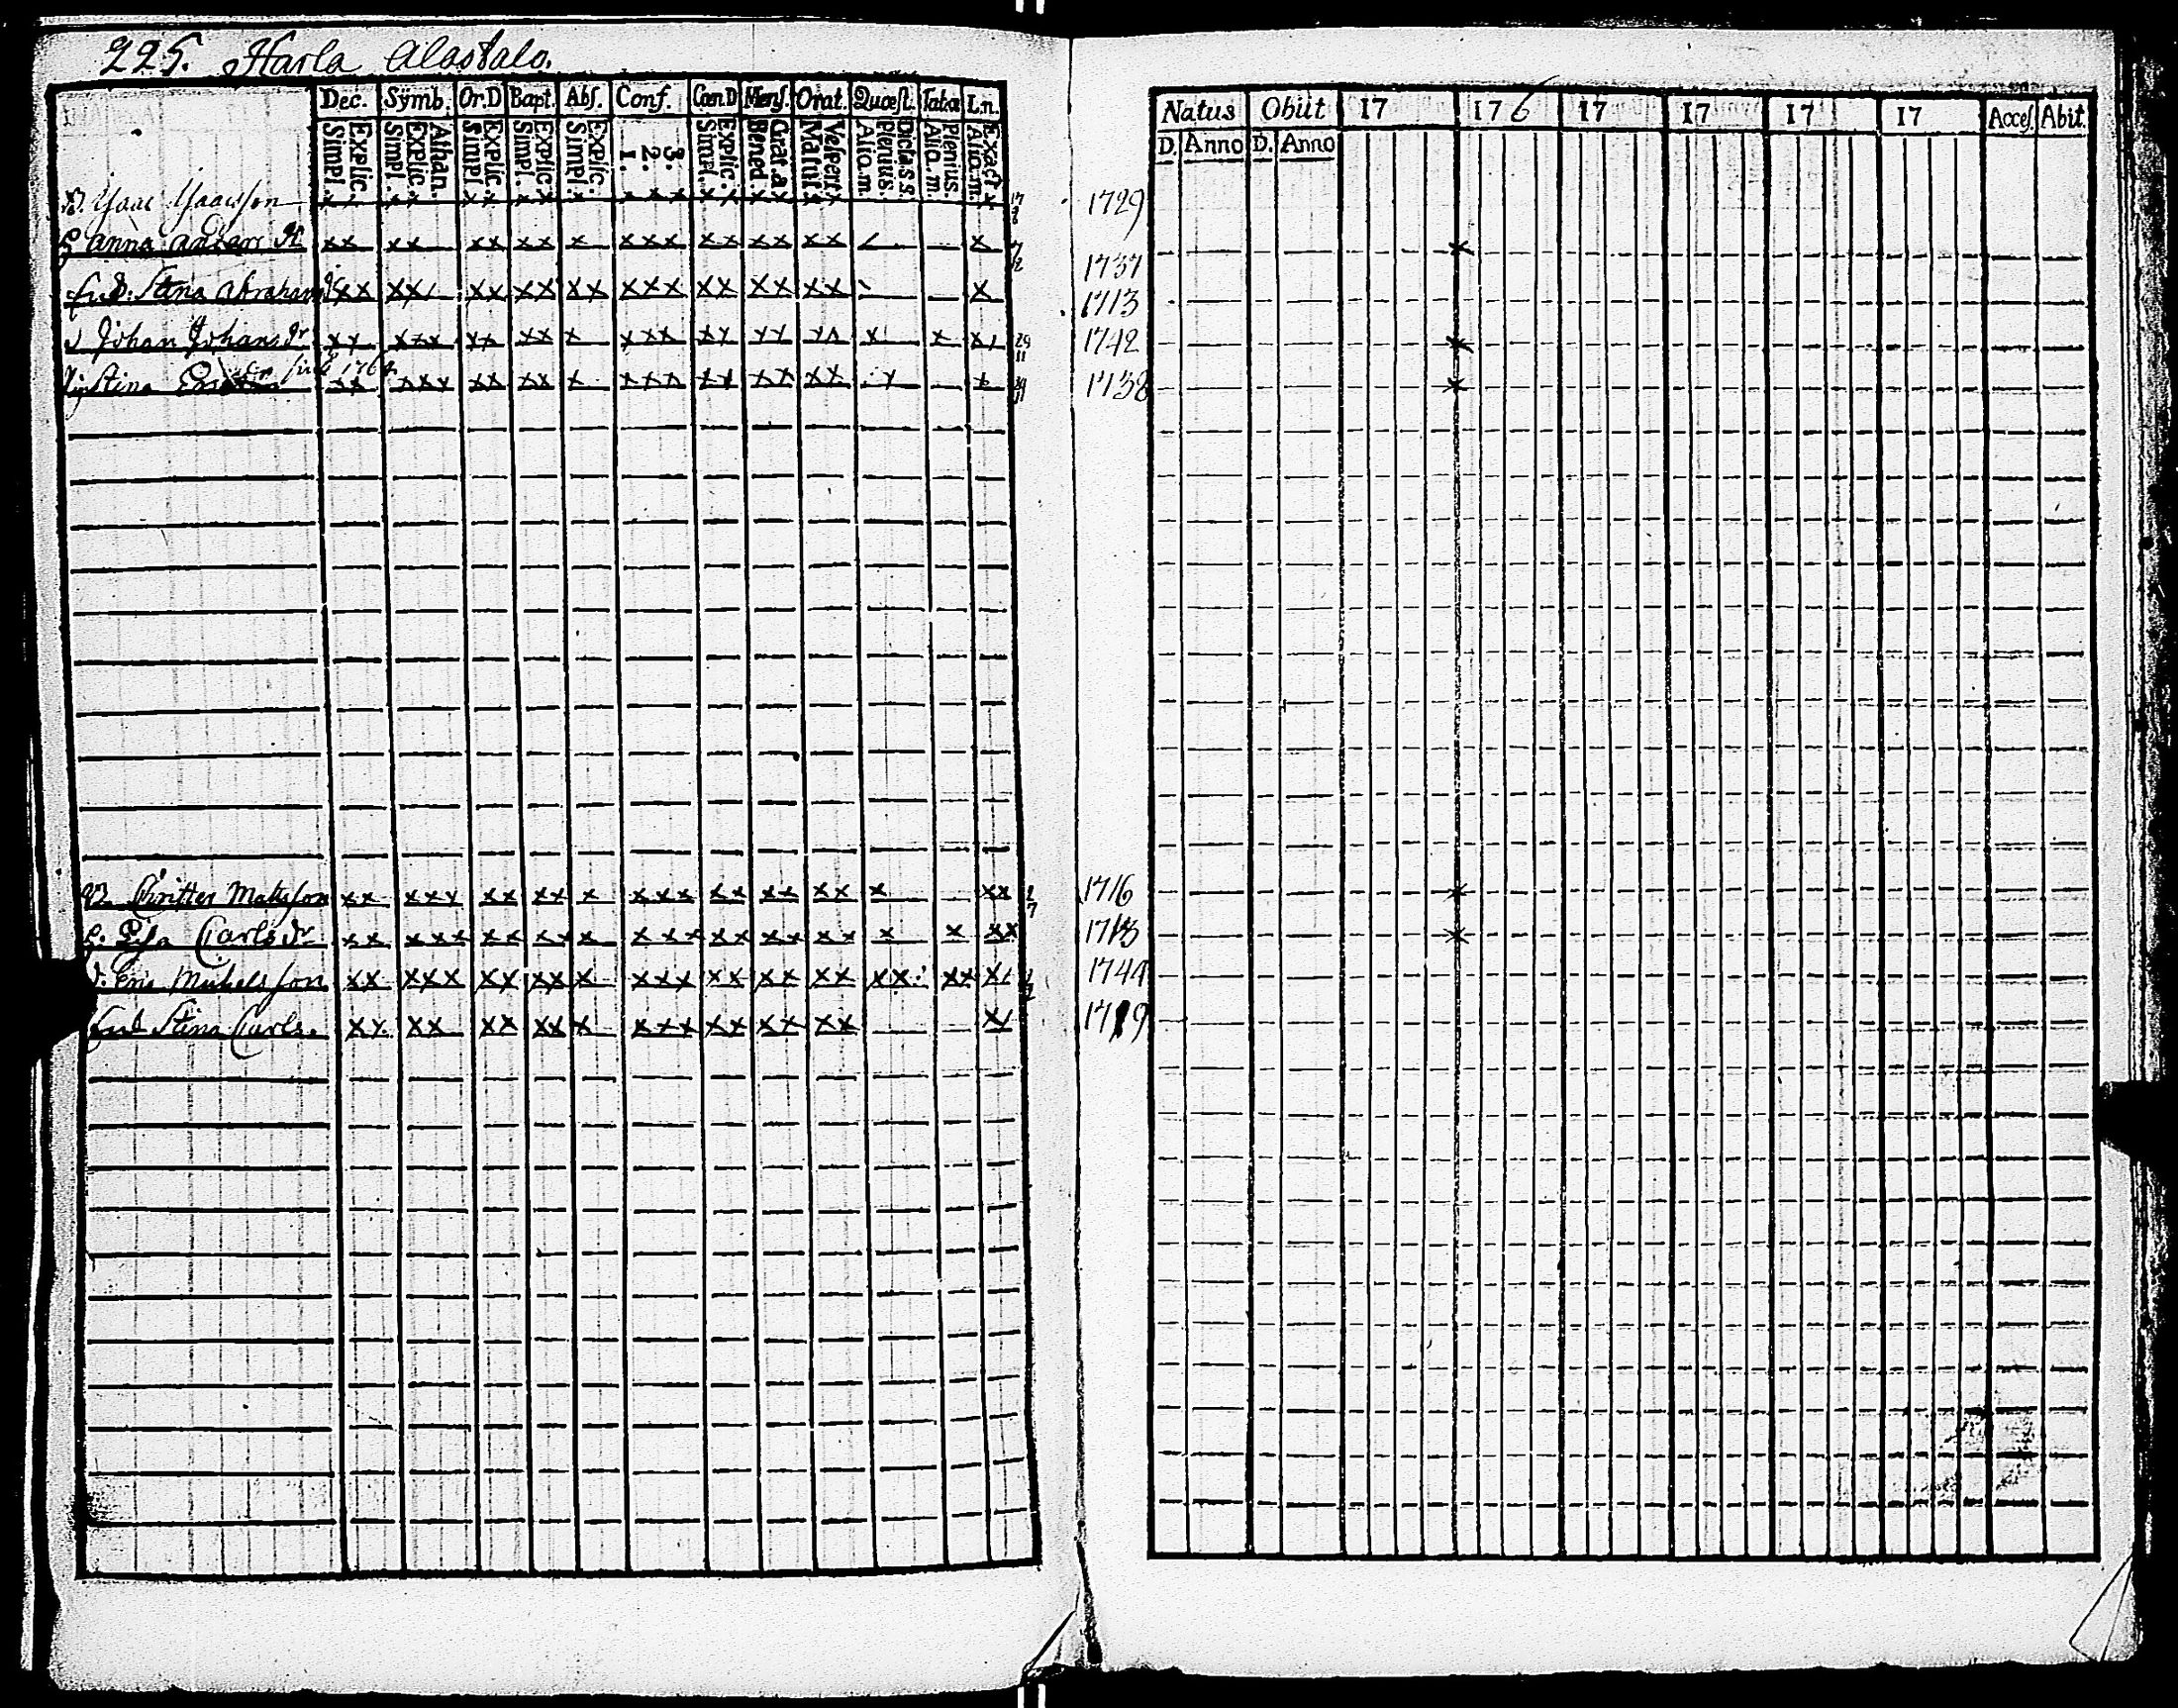 225. Harla Alastalo.
Dec. Symb. Or.D Bapt. Abs. Conf. Cœn.D Mens. Orat. Quœst. Tabœ L.n.
Explic. Simpl. Athan. Explic. Simpl. Explic. Simpl. Explic. Simpl. Explic. Simpl. 3. 2. 1. Explic. Simpl. Grat.a. Bened. Vesper. Matut. Dictass. Plenius. Alio.m. Plenius. Alio.m. Exact. Alio.m.
Natus Obiit 17 176 17 17 17 17 Acces. Abit.
D. Anno D. Anno
B. Isaac Isaacsson x x x x x x x x x x x x x x x x x x x 1729
H. Anna Anders dr xx xx xx xx x xxx xx xx xx x 7/2 1737 x
Stina Abrahams xx xx xx xx xx xxx xx xx xx x 1713
Johan Johans dr xx xxx xx xx x xxx xx xx xx x x x 29/11 1742 x
1764
Stina xx xxx xx xx x xxx xx xx xx x x 1738 x
Christer Matsson xx xxx xx xx x xxx xx xx xx x xx 1716 x
H. Lisa Carls dr xx xxx xx xx x xxx xx xx xx x x xx 1713 x
Eric Michelsson xx xxx xx xx x xxx xx xx xx xx xx x 1744
Stina Carls. xx xx xx xx x xxx xx xx xx x 1719